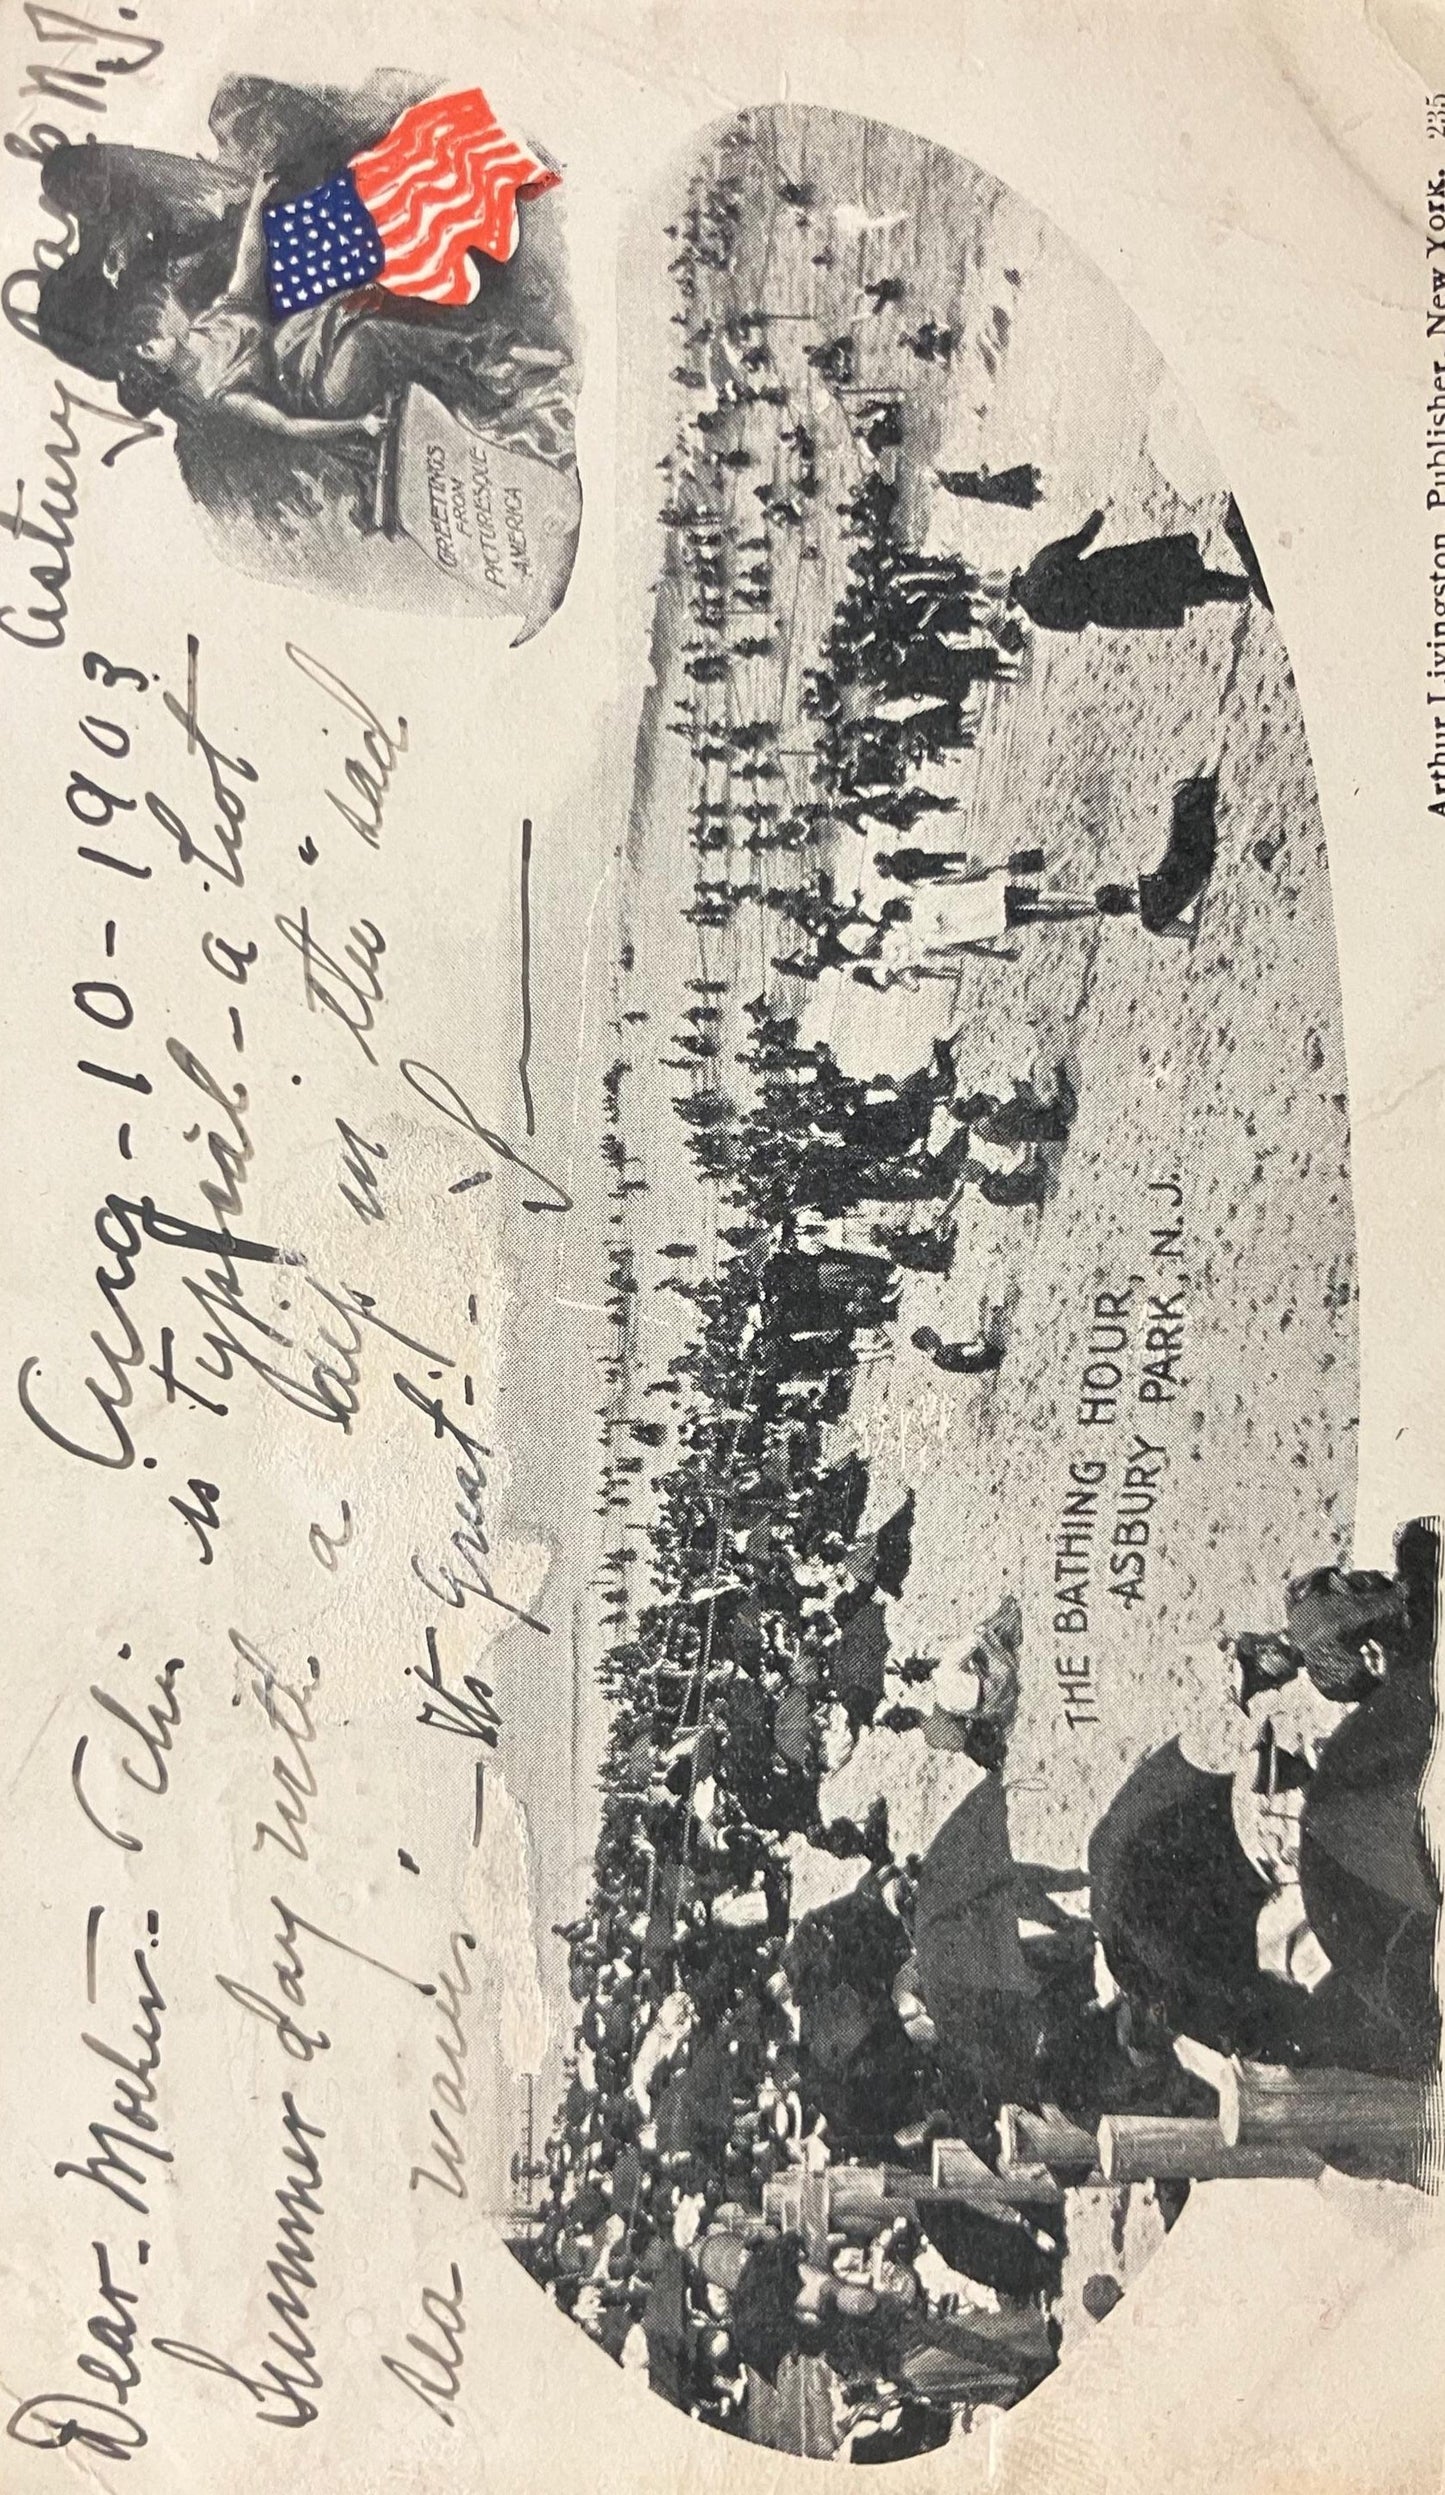 Aug-10-1903 Asbury Park N.J.
Dear-Mother- This is typical-a-hot
Summer day with a bath in the "sad
sea waves" - Its Great!-
GREETINGS
FROM
PICTURESQUE
AMERICA
THE BATHING HOUR,
ASBURY PARK, N.J.
Arthur Livingston Publisher, New York. 235